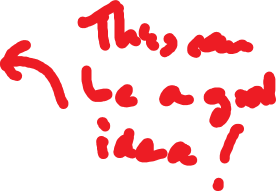 This can
be a good
idea!